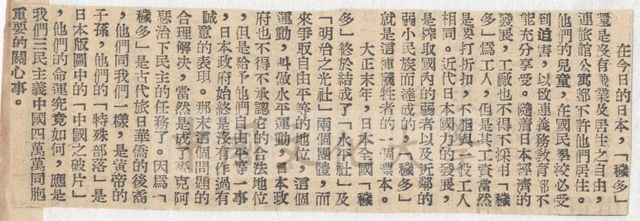 在今日的日本，「穢多」
還是沒有職業及居住之自由，
連旅館公寓都不許他們居住。
他們的兒童，在國民學校必受
到迫害，以致連義務教育都不
能充分享受。隨着日本經濟的
發展，工廠也不得不採用「穢
多」爲工人，但是其工資當然
是要打折扣，不能與一般工人
相同。近代日本國力的發展，
是搾取國內的弱者以及近鄰的
弱小民族而達成的，「穢多」
就是這種犧牲者的一個標本。
大正末年，日本全國「穢
多」終於結成了「水平社」及
「明治之光社」兩個團體，而
來爭取自由平等的地位，這個
運動，叫做水平運動，日本政
府也不得不承認它的合法地位
，但是給予他們自由平等一事
，日本政府始終是沒有作過有
誠意的表現。那末這個問題的
合理解決，當然是成了麥克阿
瑟治下民主的任務了。因爲「
穢多」是古代旅日華僑的後裔
，他們同我們一樣，是黃帝的
子孫，他們的「特殊部落」是
日本版圖中的「中國之破片」
，他們的命運究竟如何，應是
我們三民主義中國四萬萬同胞
重要的關心事。